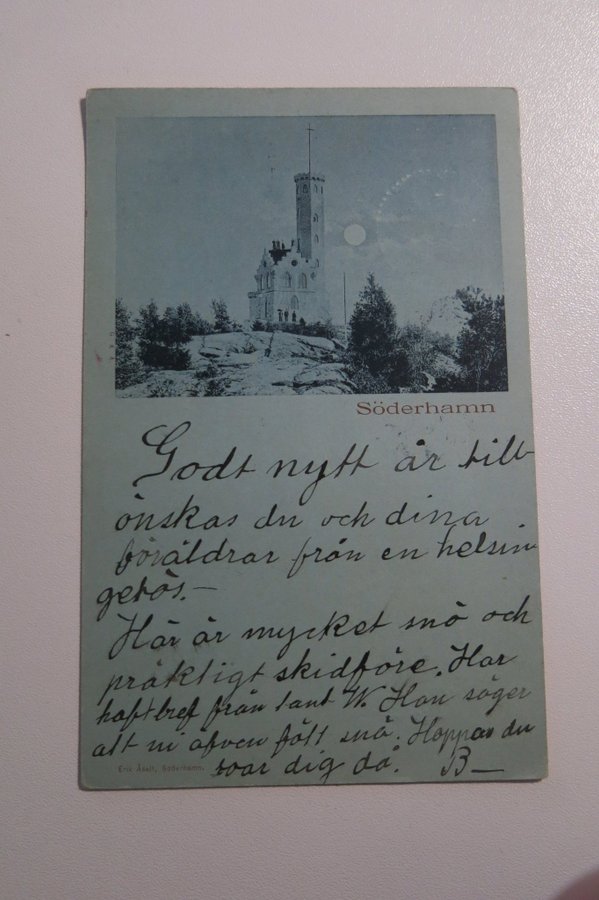 Söderhamn
Godt nytt år till-
önskas du och dina
föräldrar från en helsin-
getös.—
Här är mycket snö och
präktigt skidföre. Har
haft bref från tant W. Hon säger
att ni äfven fått snö. Hoppas du
roar dig då. B—
Erik Åsell, Söderhamn.